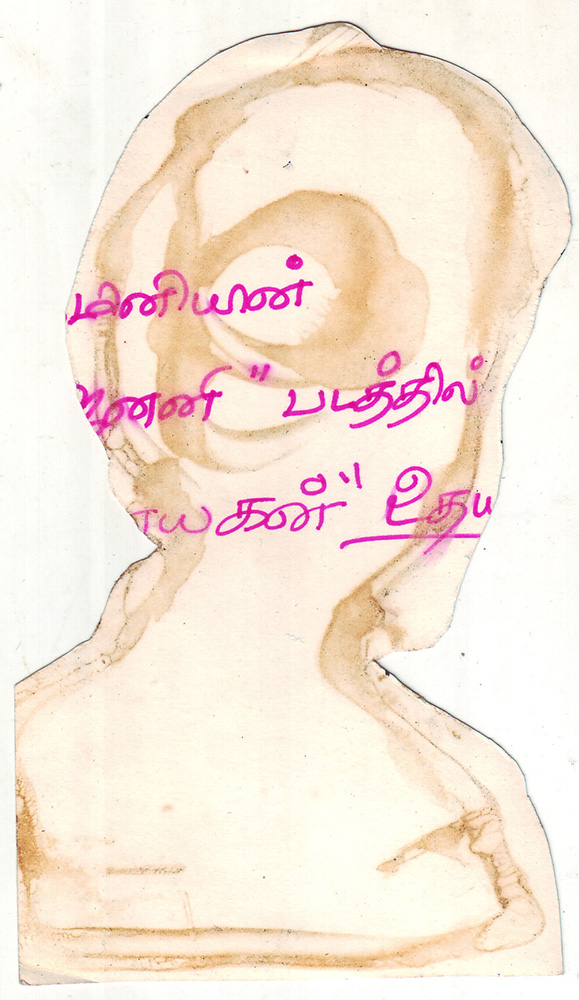 மனியன்
ஜனனி" படத்தில்
ாயகன்" உதய